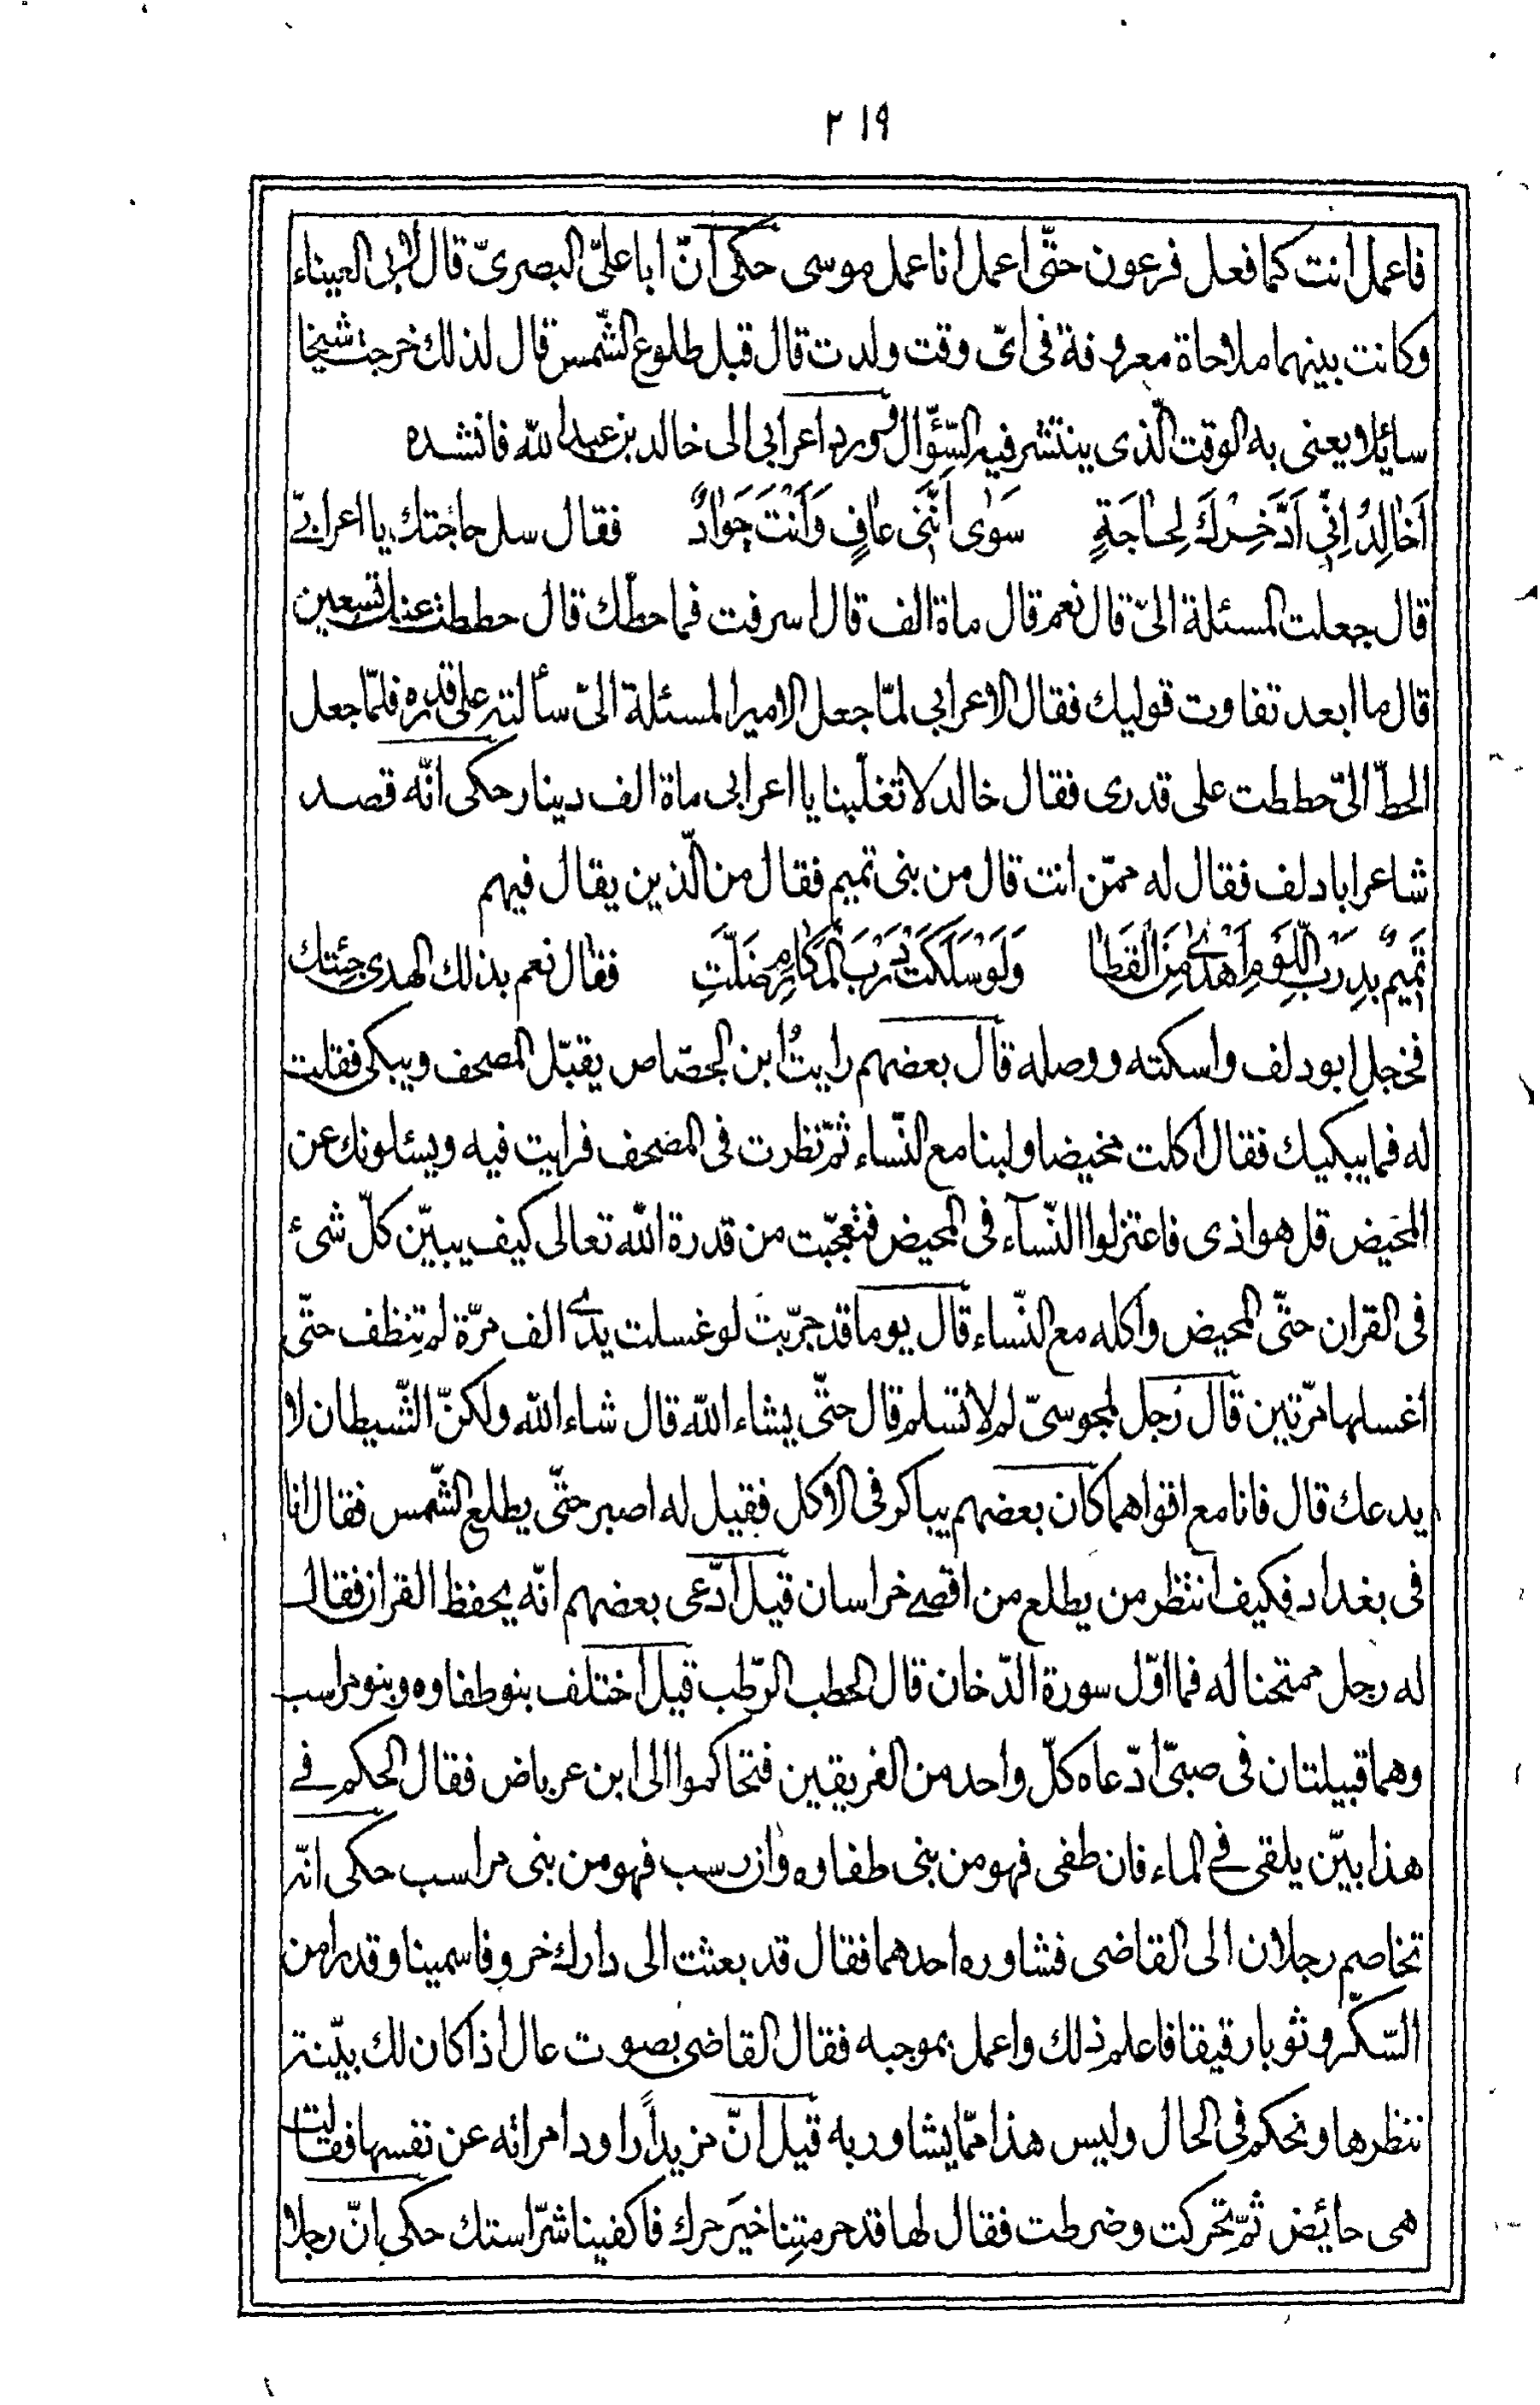 ٢١٩
فاعمل انت كما فعل فرعون حتّى اعمل انا عمل موسى حكى انّ ابا علىّ البصرىّ قال لابى العيناء
وكانت بينهما ملاحاة معروفة فى اىّ وقت ولدت قال قبل طلوع الشّمس قال لذلك خرجت شيخا
سايلا يعنى به الوقت الّذى ينتشر فيه السّؤّال ورد اعرابى الى خالد بن عبد الله فانشده
اَخالِدُ اِنّى اَدَّخِرْكَ لِحاجَةٍ سَوٰى اَنَّنى عافٍ وَاَنْتَ جَوادٌ فقال سل حاجتك يا اعرابىّ
قال جعلت المسئلة الىّ قال نعم قال ماة الف قال اسرفت فما حطّك قال حططت عنك تسعين
قال ما ابعد تفاوت قوليك فقال الاعرابى لمّا جعل الامير المسئلة الىّ سألته على قدره فلمّا جعل
الحطّ الىّ حططت على قدرى فقال خالد لا تغلّبنا يا اعرابى ماة الف دينار حكى انّه قصد
شاعر ابا دلف فقال له ممّن انت قال من بنى تميم فقال من الّذين يقال فيهم
تَميمٌ بِدَرْبِ اللُّؤمِ اَهْدٰى مِنَ الْقَطا وَلَوْ سَلَكَتْ دَرْبَ الْمَكارِمِ ضَلَّتِ فقال نعم بذلك الهدى جئتك
فخجل ابو دلف واسكته ووصله قال بعضهم رايتُ ابن الجصّاص يقبّل المصحف ويبكى فقلت
له فما يبكيك فقال اكلت مخيضا ولبنا مع النّساء ثمّ نظرت فى المصحف فرايت فيه ويسئلونك عن
المَحيض قل هو اذى فاعتزلوا النّسآء فى المحيض فتعجّبت من قدرة الله تعالى كيف يبيّن كلّ شىء
فى القران حتّى المحيض واكله مع النّساء قال يوما قد جرّبت لو غسلت يدى الف مرّة لم تنظف حتّى
اغسلها مرّتين قال رجل لمجوسىّ لم لا تسلم قال حتّى يشاء الله قال شاء الله ولكنّ الشّيطان لا
يدعك قال فانا مع اقواهما كان بعضهم يباكر فى الاكل فقيل له اصبر حتّى يطلع الشّمس فقال انا
فى بغداد فكيف انتظر من يطلع من اقصى خراسان قيل ادّعى بعضهم انّه يحفظ القران فقال
له رجل ممتحنا له فما اوّل سورة الدّخان قال الحطب الرّطب قيل اختلف بنو طفاوه وبنو راسب
وهما قبيلتان فى صبىّ ادّعاه كلّ واحد من الفريقين فتحاكموا الى ابن عرباض فقال الحكم فى
هذا بيّن يلقى فى الماء فان طفى فهو من بنى طفاوه وان رسب فهو من بنى راسب حكى انّه
تخاصم رجلان الى القاضى فشاوره احدهما فقال قد بعثت الى دارك خروفا سمينا وقدرا من
السّكّر وثوبا رقيقا فاعلم ذلك واعمل بموجبه فقال القاضى بصوت عال اذا كان لك بيّنة
ننظرها ونحكم فى الحال وليس هذا ممّا يشاور به قيل انّ مزيداً راود امراته عن نفسها فقالت
هى حائض ثمّ تحركت وضرطت فقال لها قد حرمتِنا خيرَ حرك فاكفينا شرّ استك حكى انّ رجلا